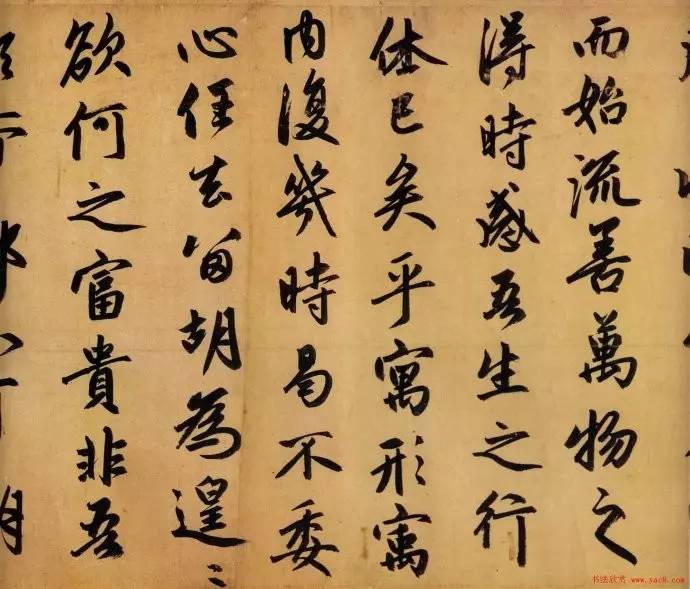 而始流善萬物之
得時感吾生之行
休已矣乎寓形寓
内復幾時曷不委
心任去留胡為遑〻
欲何之富貴非吾
书法欣赏 www.sac8.com